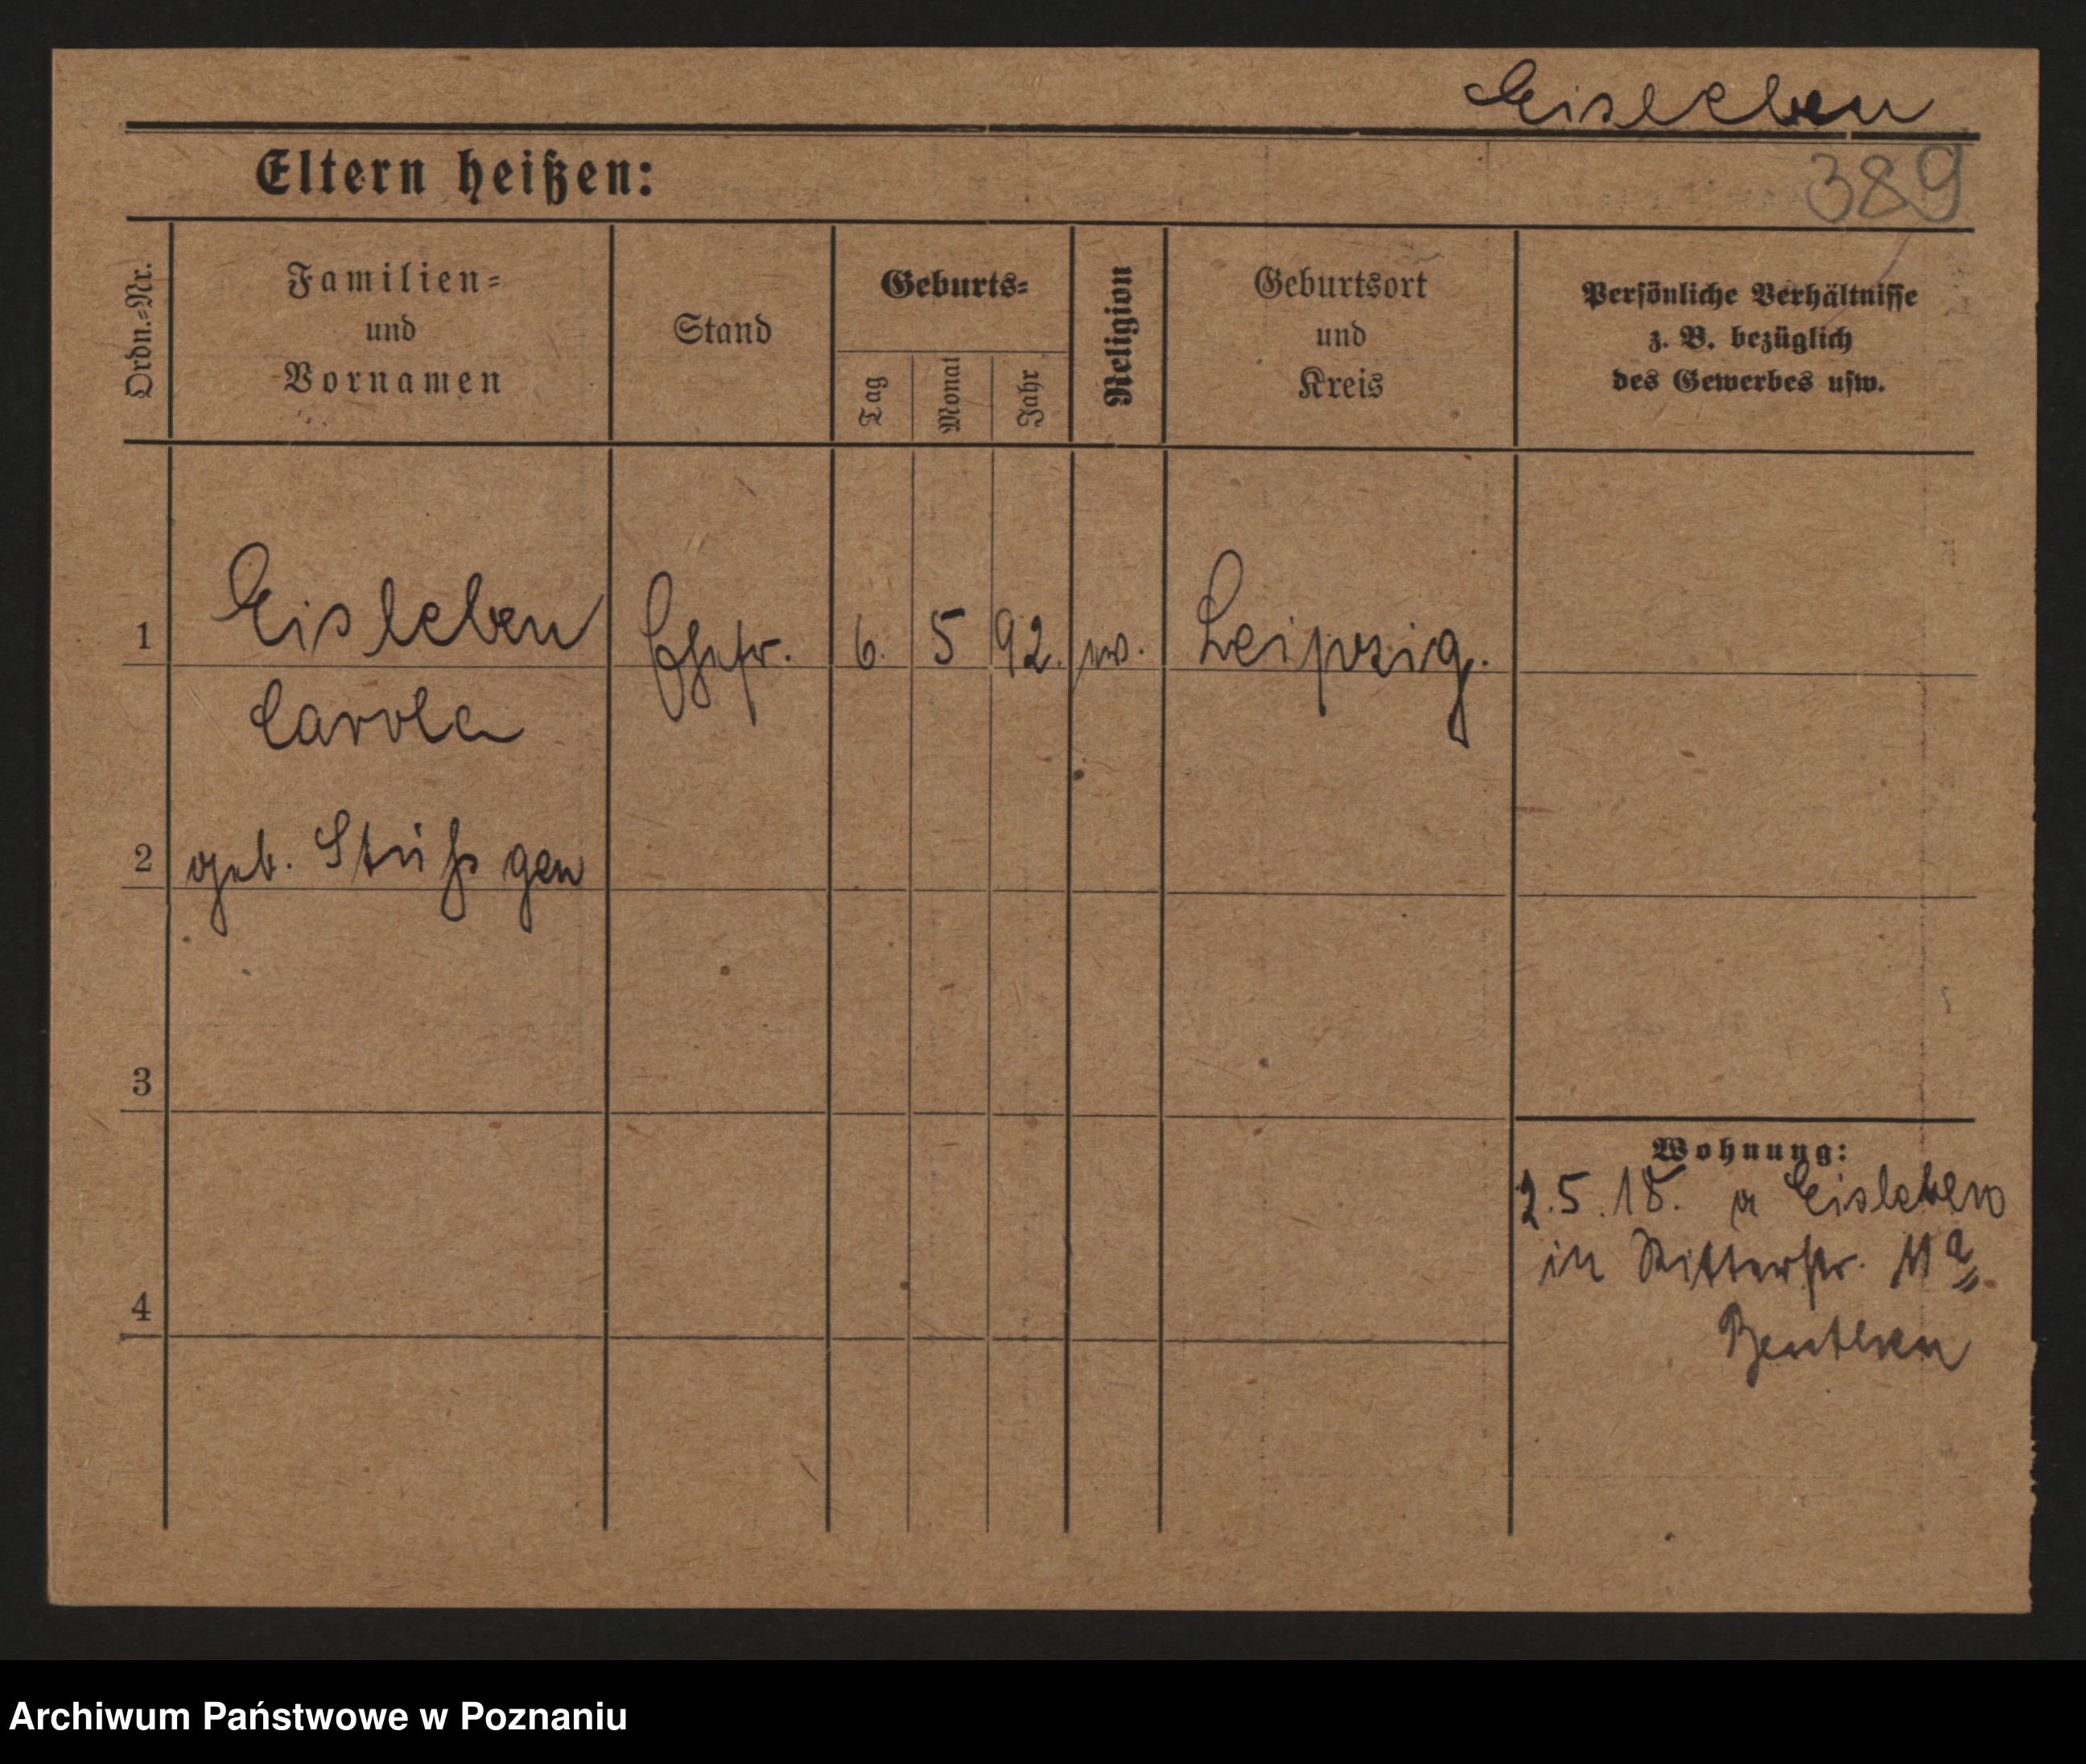 Eisleben
Eltern heißen:
389
Ordn.-Nr.
Familien-
und
Vornamen
Stand
Geburts-
Tag
Monat
Jahr
Religion
Geburtsort
und
Kreis
Persönliche Verhältnisse
z. B. bezüglich
des Gewerbes usw.
1 Eisleben Ehefr. 6. 5 92. ev. Leipzig.
Carola
2 geb. Stüßgen
3
Wohnung:
2.5.18. a Eisleben
in Ritterstr. 11a
4
Beuthen
Archiwum Państwowe w Poznaniu